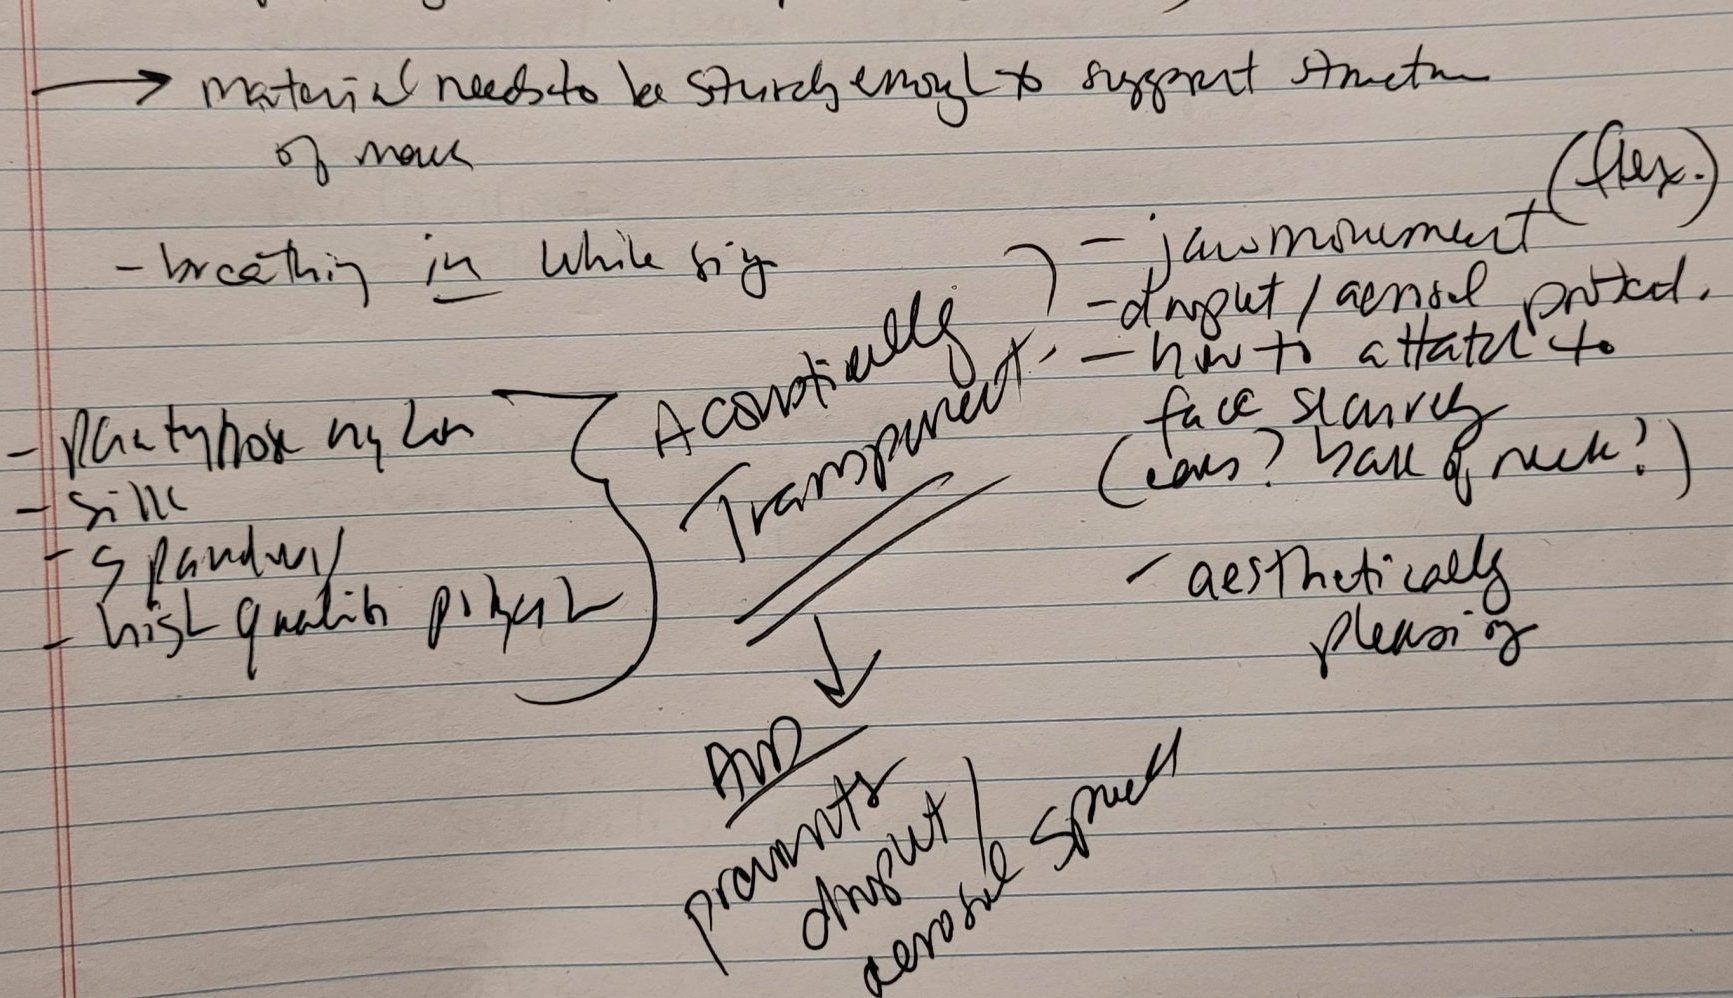 → material needs to be sturdy enough to support structure
of mask
- breathing in while sing
(flex.)
- jaw movement
- droplet / aerosol protect.
- how to attatch to
face securely
(ears? back of neck?)
- aesthetically
pleasing
Acoustically
Transparent
- pantyhose nylon
- silk
- spandex
- high quality polyest
AND
prevents
droplet /
aerosol spread